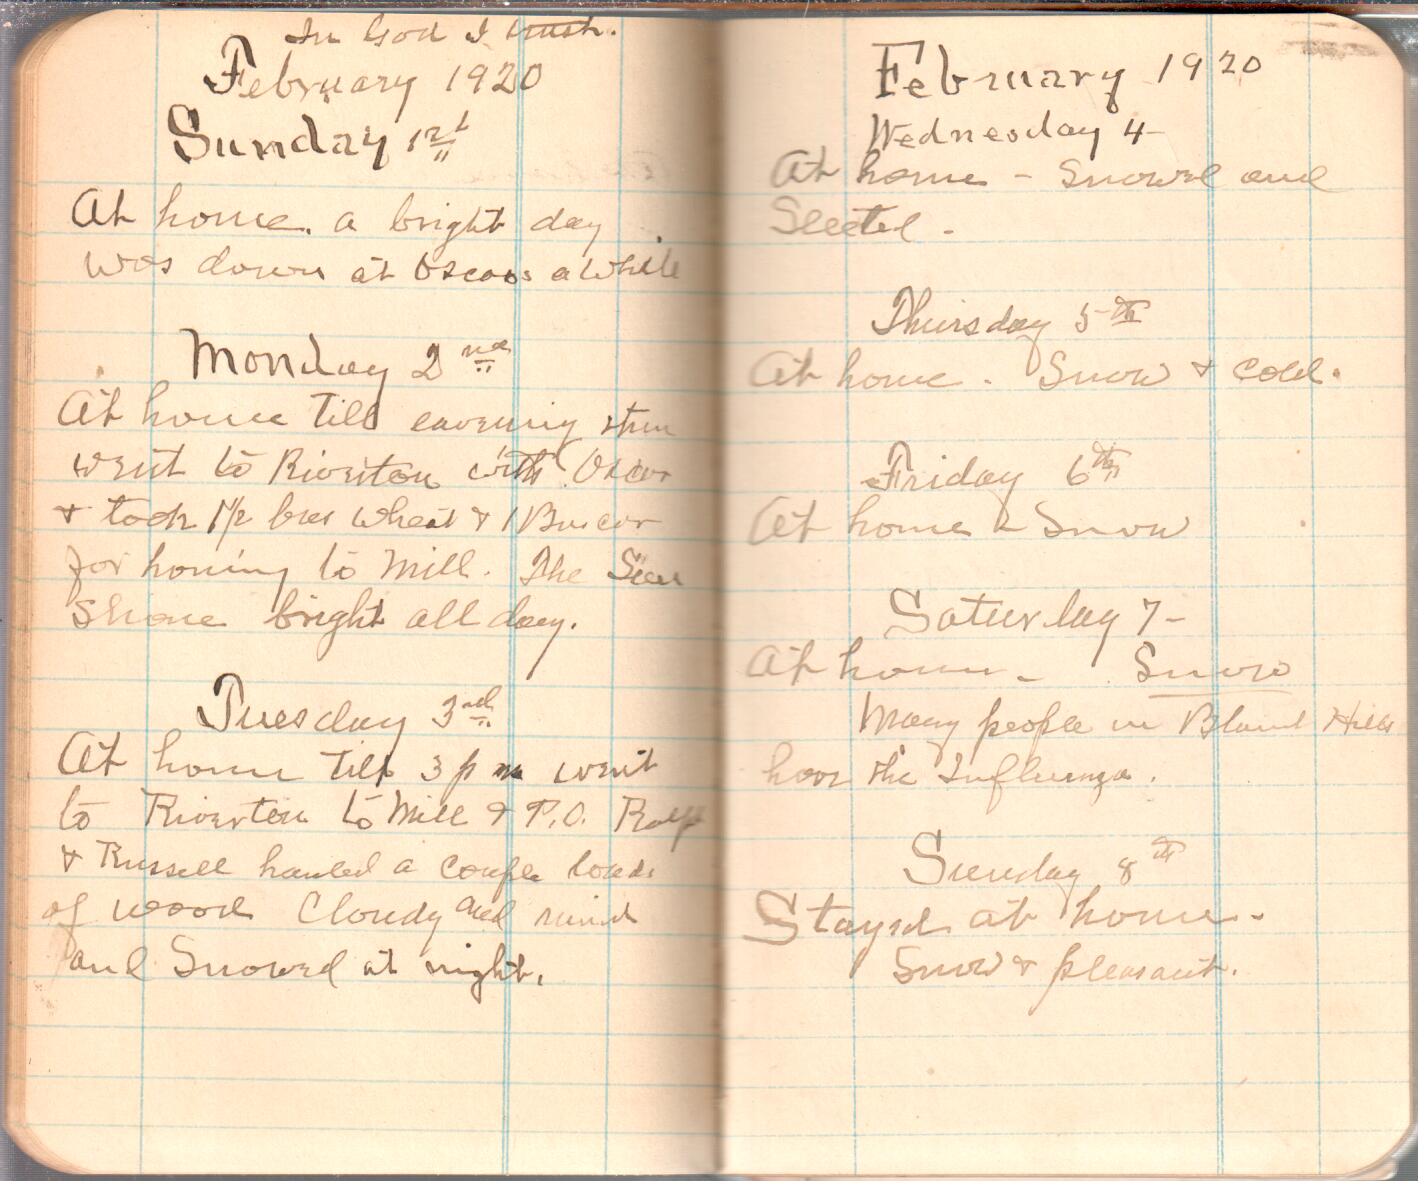 In God I trust.
February 1920
Sunday 1st
At home. a bright day
was down at Oscars a while
Monday 2nd
At home till evening then
went to Riverton with Oscar
& took 1 1/2 bus wheat & 1 Bus cor
for homing to Mill. The Sun
Shone bright all day.
Tuesday 3rd
At home till 3 p m went
to Riverton to Mill & P.O. Ralph
& Russell hauled a couple loads
of wood Cloudy and
and Snowed at night.
February 1920
Wednesday 4
At home - Snowed and
Sleeted -
Thursday 5th
At home. Snow & cold.
Friday 6th
At home - Snow
Saturday 7-
At home - Snow
Many people in Hills
have the Influenza.
Sunday 8th
Stayed at home -
Snow & pleasant.